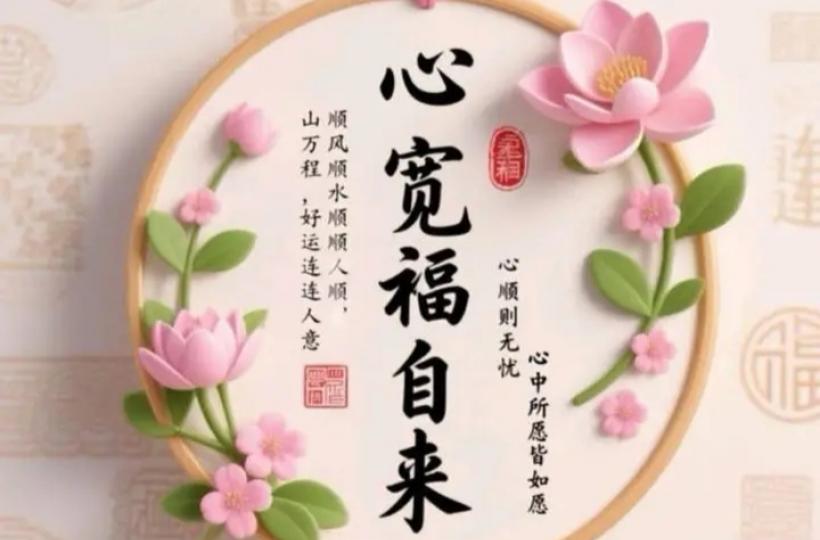 心宽福自来
顺风顺水顺顺人顺，
山万程，好运连连人意
心顺则无忧
心中所愿皆如愿
福